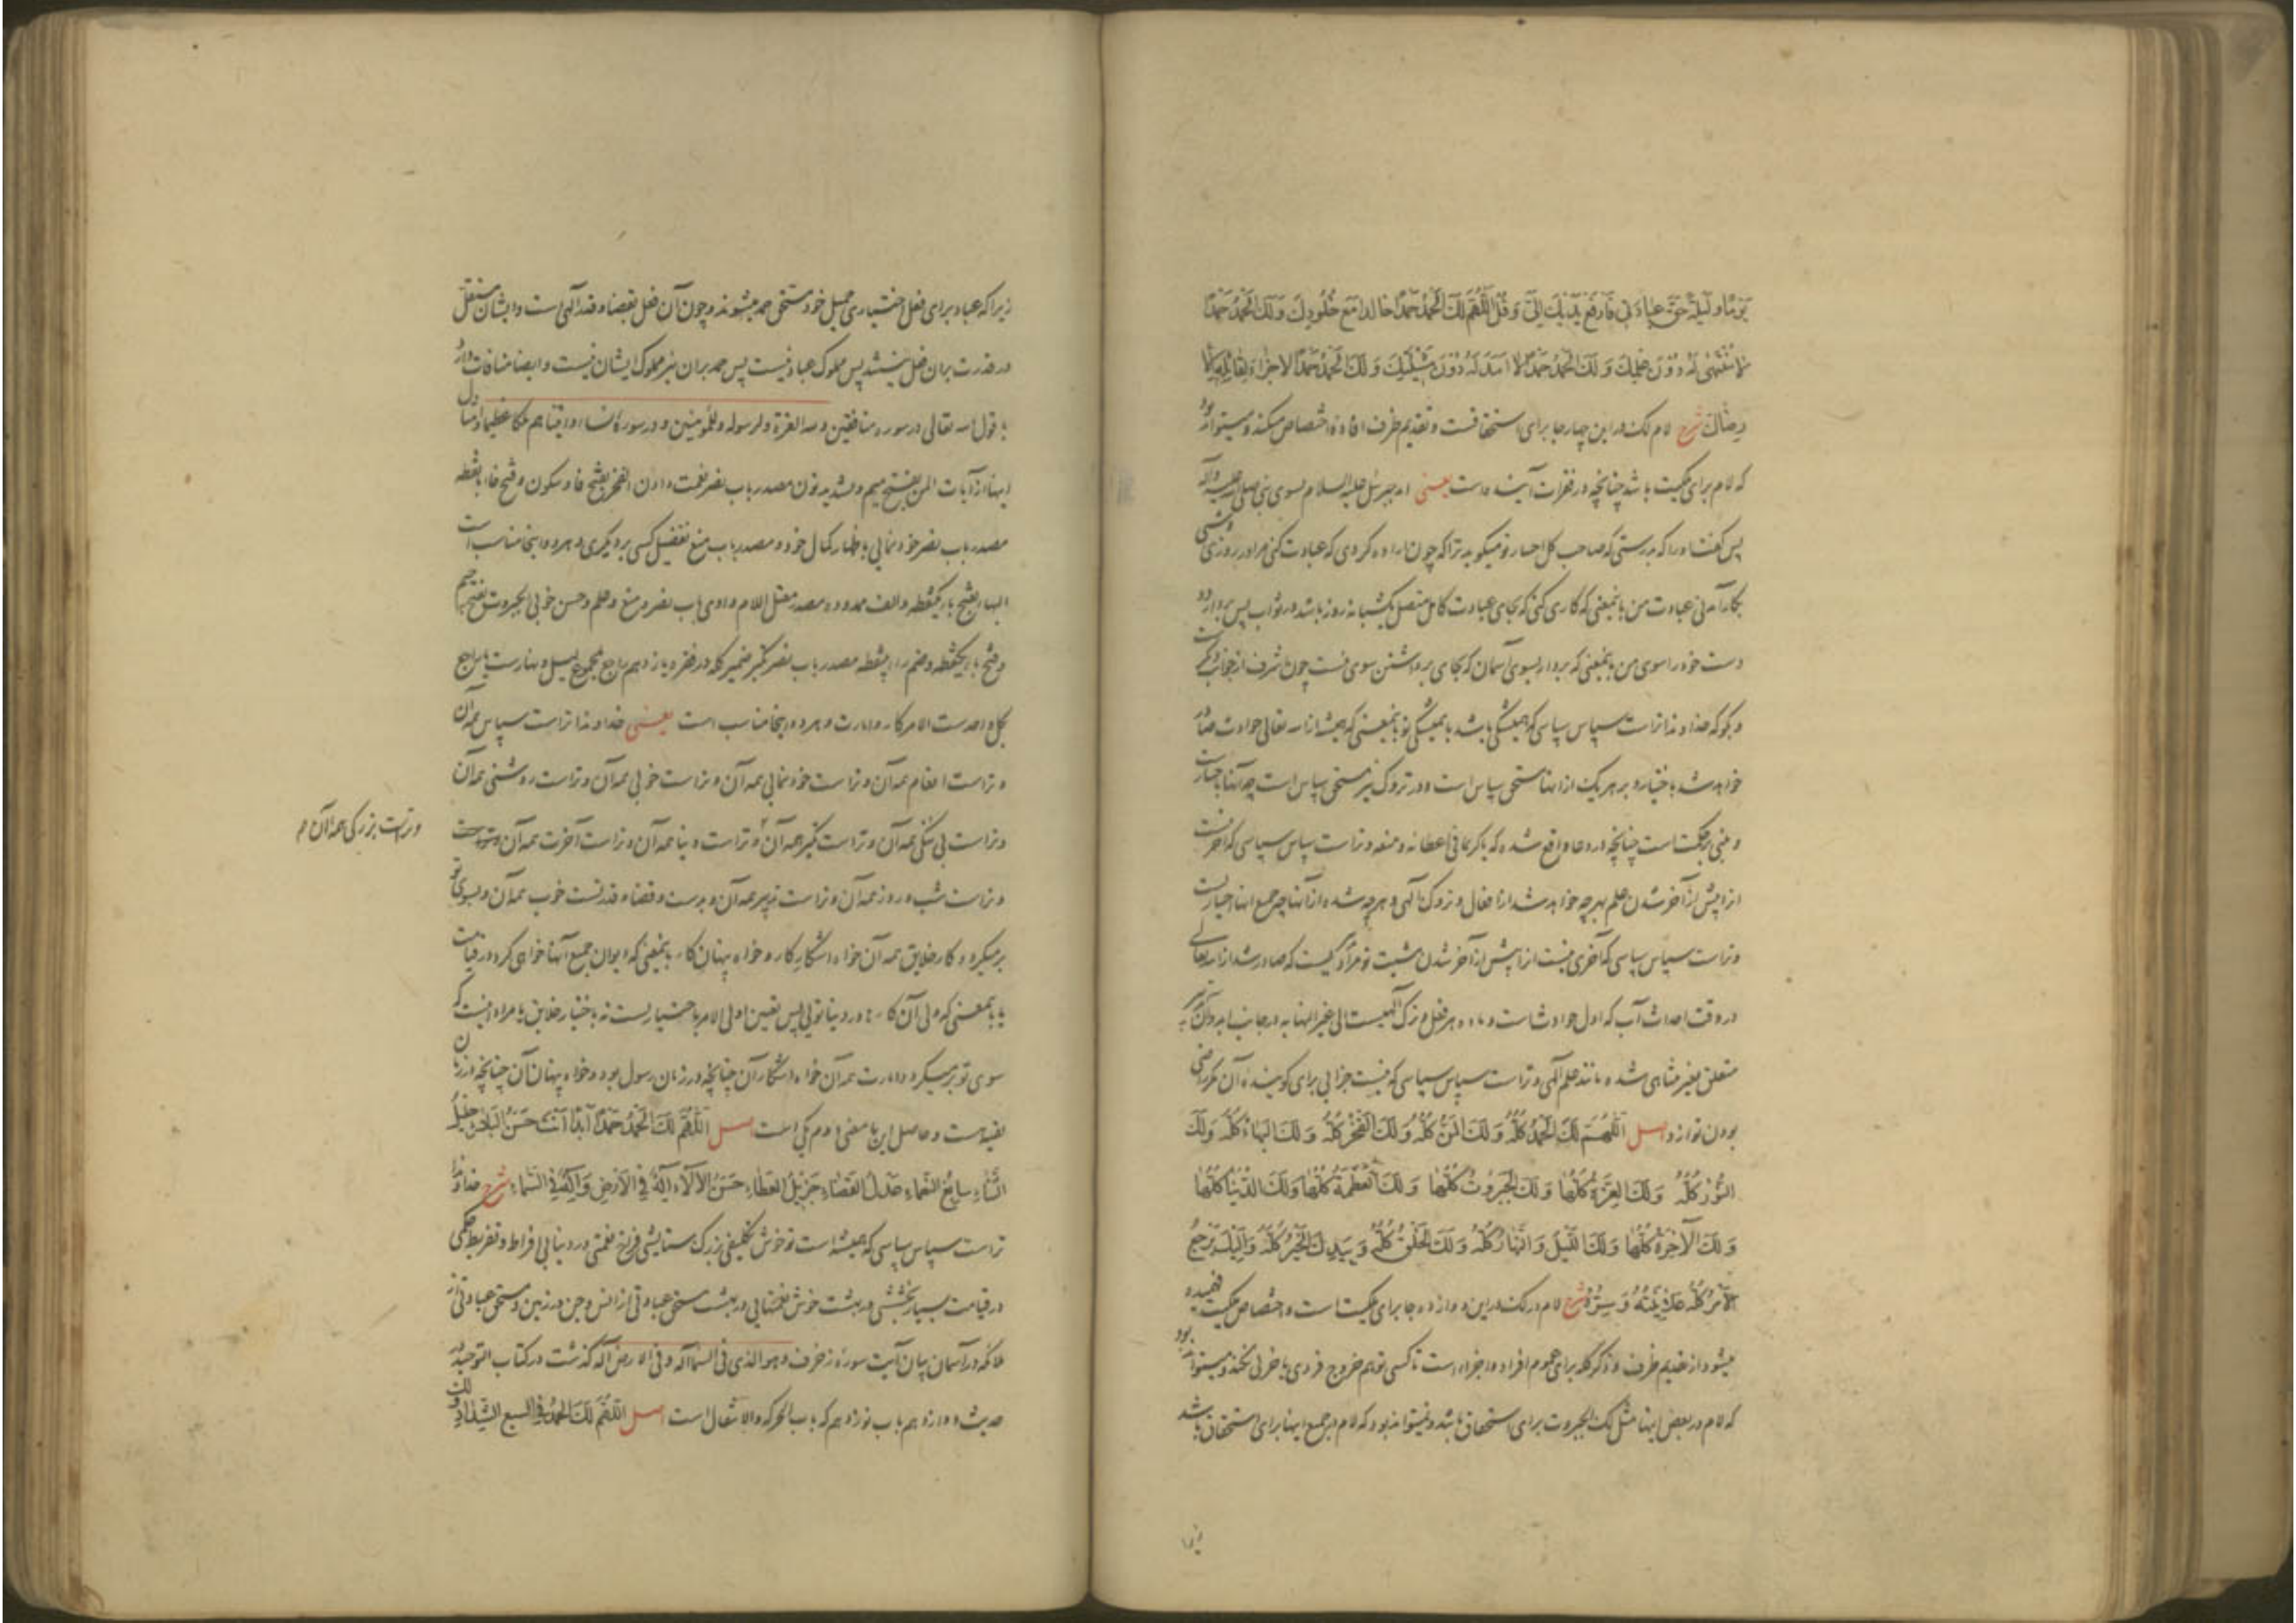 يَوْمًا وَلَيْلَةً حَقَّ عِبَادَتِي فَارْفَعْ يَدَيْكَ اِلَيَّ وَقُلْ اَللّٰهُمَّ لَكَ الْحَمْدُ حَمْدًا خَالِدًا مَعَ خُلُودِكَ وَلَكَ الْحَمْدُ حَمْدًا
لَا مُنْتَهٰى لَهُ دُونَ عِلْمِكَ وَلَكَ الْحَمْدُ حَمْدًا لَا اَمَدَ لَهُ دُونَ مَشِيَّتِكَ وَلَكَ الْحَمْدُ حَمْدًا لَا جَزَاءَ لِقَائِلِهِ اِلَّا
رِضَاكَ شرح لام لک در این چهار جا برای استحقاقست و تقدیم ظرف افاده اختصاص میکند و میتواند بود
که لام برای ملکیت باشد چنانچه در فقرات آینده است یعنی آمد جبرئیل علیه السلام بسوی نبی صلی الله علیه وآله
پس گفت او را که بدرستی که صاحب کل اختیار تو میگوید ترا که چون اراده کردی که عبادت کنی مرا در روزی و شبی
بکارآمدنی عبادت من باینمعنی که کاری کنی که بجای عبادت کامل متصل یکشبانه روز باشد در ثواب پس بردار دو
دست خود را سوی من باینمعنی که بردار بسوی آسمان که بجای برداشتن سوی منست چون اشرف از جوانب دیگرست
و بگو که خداوندا تراست سپاس سپاسی که همیشگی باشد با همیشگی تو باینمعنی که همیشه از الله تعالی حوادث صادر
خواهد شد باختیار و بر هر یک از انها مستحق سپاس است و در تروک نیز مستحق سپاس است چه آنها باختیارست
و مبنی بر حکمتست چنانچه در دعا واقع شده که یا کریما فی اعطائه و منعه و تراست سپاس سپاسی که آخر نیست
انرا پیش از آخر شدن علم بهر چه خواهد شد از افعال و تروک الهی و هر چه شده از آنها چه جمیع اینها اختیاریست
و تراست سپاس سپاسی که آخری نیست انرا پیش از آخر شدن مشیت تو مراد مشیتیست که صادر شد از الله تعالی
در وقت احداث آب که اول حوادث است و ماده هر فعل و ترک الهیست الی غیر النهایه در جانب ابد و آن نیز
متعلق بغیر متناهی شده مانند علم الهی و تراست سپاس سپاسی که نیست جزایی برای گوینده آن مگر راضی
بودن تو ازو اصل اَللّٰهُمَّ لَكَ الْحَمْدُ كُلُّهُ وَلَكَ الْمَنُّ كُلُّهُ وَلَكَ الْفَخْرُ كُلُّهُ وَلَكَ الْبَهَاءُ كُلُّهُ وَلَكَ
النُّورُ كُلُّهُ وَلَكَ الْعِزَّةُ كُلُّهَا وَلَكَ الْجَبَرُوتُ كُلُّهَا وَلَكَ الْعَظَمَةُ كُلُّهَا وَلَكَ الدُّنْيَا كُلُّهَا
وَلَكَ الْآخِرَةُ كُلُّهَا وَلَكَ اللَّيْلُ وَالنَّهَارُ كُلُّهُ وَلَكَ الْخَلْقُ كُلُّهُ وَبِيَدِكَ الْخَيْرُ كُلُّهُ وَاِلَيْكَ يَرْجِعُ
الْاَمْرُ كُلُّهُ عَلَانِيَتُهُ وَسِرُّهُ شرح لام در لک در این دوازده جا برای ملکیت است و اختصاص ملکیت فهمیده
میشود از تقدیم ظرف و ذکر کله برای عموم افراد و اجزاء است تا کسی توهم خروج فردی یا جزئی نکند و میتواند بود
که لام در بعض اینها مثل لک الجبروت برای استحقاق باشد و نمیتواند بود که لام در جمیع اینها برای استحقاق باشد
زیرا
زیرا که عباد برای فعل اختیاری جمیل خود مستحق حمد میشوند و چون آن فعل بقضا و قدر الهی است و ایشان مستقل
در قدرت بران فعل نیستند پس مملوک عباد نیست پس حمد بران نیز مملوک ایشان نیست و ایضا منافات دارد
با قول الله تعالی در سوره منافقین ولله العزة ولرسوله وللمؤمنین و در سوره نساء وآتیناهم ملکا عظیما و امثال
اینها از آیات المن بفتح میم و تشدید نون مصدر باب نصر نعمت دادن الفخر بفتح فا و سکون و فتح خاء بانقطه
مصدر باب نصر خودنمایی باظهار کمال خود و مصدر باب منع تفضیل کسی بر دیگری و هر دو اینجا مناسب است
البهاء بفتح باء یکنقطه و الف ممدوده مصدر معتل اللام واوی باب نصر و منع و علم و حسن خوبی الجبروت بفتح جیم
و فتح باء یکنقطه و ضم راء بینقطه مصدر باب نصر تکبر ضمیر کله در فقره یازدهم راجع بمجموع لیل و نهارست یا راجع
بکل واحدست الامر کار و امارت و هر دو اینجا مناسب است یعنی خداوندا تراست سپاس همه آن
و تراست انعام همه آن و تراست خودنمایی همه آن و تراست خوبی همه آن و تراست روشنی همه آن
و تراست بی ننگی همه آن و تراست تکبر همه آن و تراست دنیا همه آن و تراست آخرت همه آن و تراست
و تراست بزرگی همه آن م
و تراست شب و روز همه آن و تراست تدبیر همه آن و بدست و قضا و قدر تست خوب همه آن و بسوی تو
برمیگردد کار خلایق همه آن خواه اشکار کار و خواه پنهان کار باینمعنی که دیوان جمیع آنها خواهی کرد در قیامت
یا بامعنی که ولی آن کارها در دنیا تویی پس تعیین اولی الامر باختیار تست نه باختیار خلایق یا مراد اینست که
سوی تو برمیگردد امارت همه آن خواه اشکار آن چنانچه در زمان رسول بود و خواه پنهان آن چنانچه در زمان
تقیه است و حاصل این با معنی دوم یکی است اصل اَللّٰهُمَّ لَكَ الْحَمْدُ حَمْدًا اَبَدًا اَنْتَ حَسَنُ الْبَلَاءِ جَلِيلُ
الثَّنَاءِ سَابِغُ النَّعْمَاءِ عَدْلُ الْقَضَاءِ جَزِيلُ الْعَطَاءِ حَسَنُ الْآلَاءِ اِلٰهٌ فِي الْاَرْضِ وَاِلٰهٌ فِي السَّمَاءِ شرح خداوندا
تراست سپاس سپاسی که همیشه است تو خوش تکلیفی بزرگ ستایشی فراخ نعمتی در دنیا بی افراط و تفریط حکمی
در قیامت بسیار بخششی در بهشت خوش نعمتهایی در بهشت مستحق عبادتی از انس و جن در زمین و مستحق عبادتی از
ملائکه در آسمان بیان آیت سورهٔ زخرف وهو الذی فی السماء اله وفی الارض اله گذشت در کتاب التوحید در
حدیث دوازدهم باب نوزدهم که باب الحرکة والانتقال است اصل اَللّٰهُمَّ لَكَ الْحَمْدُ فِي السَّبْعِ الشِّدَادِ وَلَكَ